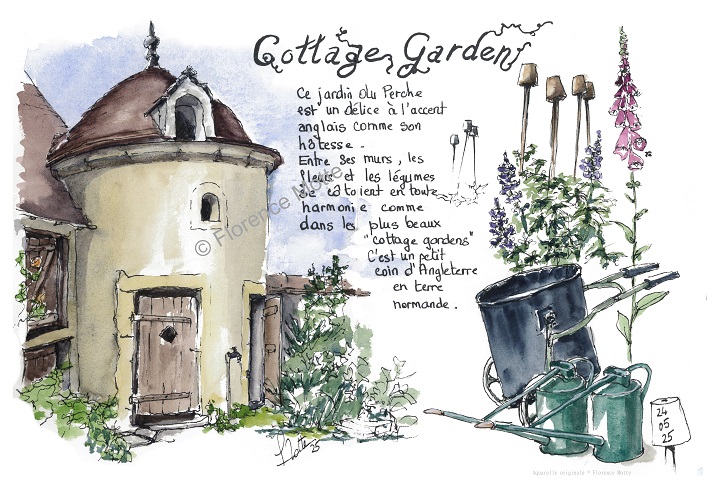 Cottage Gardens
Ce jardin du Perche
est un délice à l'accent
anglais comme son
hôtesse.
Entre ses murs, les
fleurs et les légumes
se cotoient en toute
harmonie comme
dans les plus beaux
"cottage gardens"
C'est un petit
coin d'Angleterre
en terre
normande.
© Florence Motte
FMotte
25
24
05
25
Aquarelle originale © Florence Motte